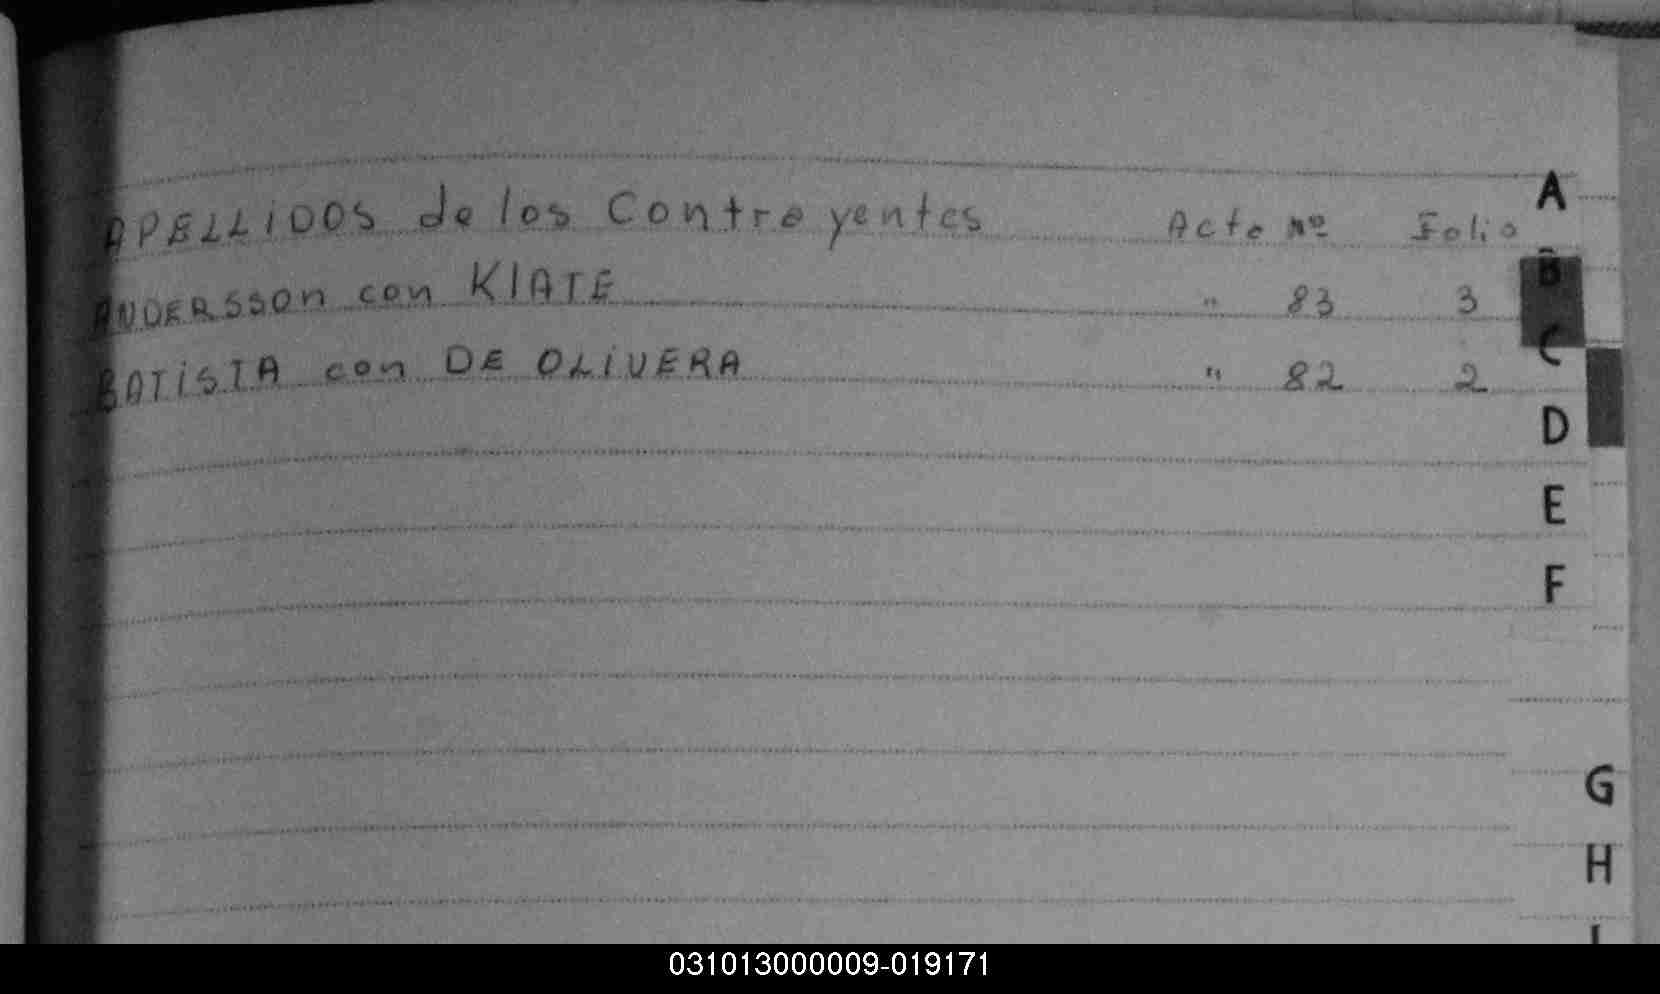 APELLIDOS de los Contrayentes Acta Nº Folio
ANDERSSON con KIATE " 83 3
BATISTA con DE OLIVERA " 82 2
A
B
C
D
E
F
G
H
I
031013000009-019171